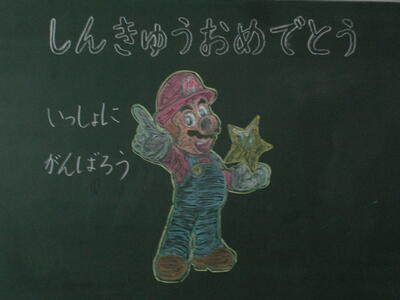 しんきゅうおめでとう
いっしょに
がんばろう